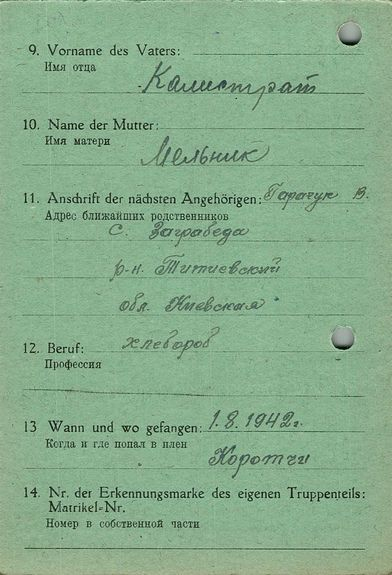 9. Vorname des Vaters:
Имя отца
Калистрат
10. Name der Mutter:
Имя матери
Мельник
11. Anschrift der nächsten Angehörigen: Гарачук В.
Адрес ближайших родственников
с. Заграбеда
р-н. Титиевский
обл. Киевская
12. Beruf: хлебороб
Профессия
13 Wann und wo gefangen: 1.8.1942г.
Когда и где попал в плен
Коротчи
14. Nr. der Erkennungsmarke des eigenen Truppenteils:
Matrikel-Nr.
Номер в собственной части